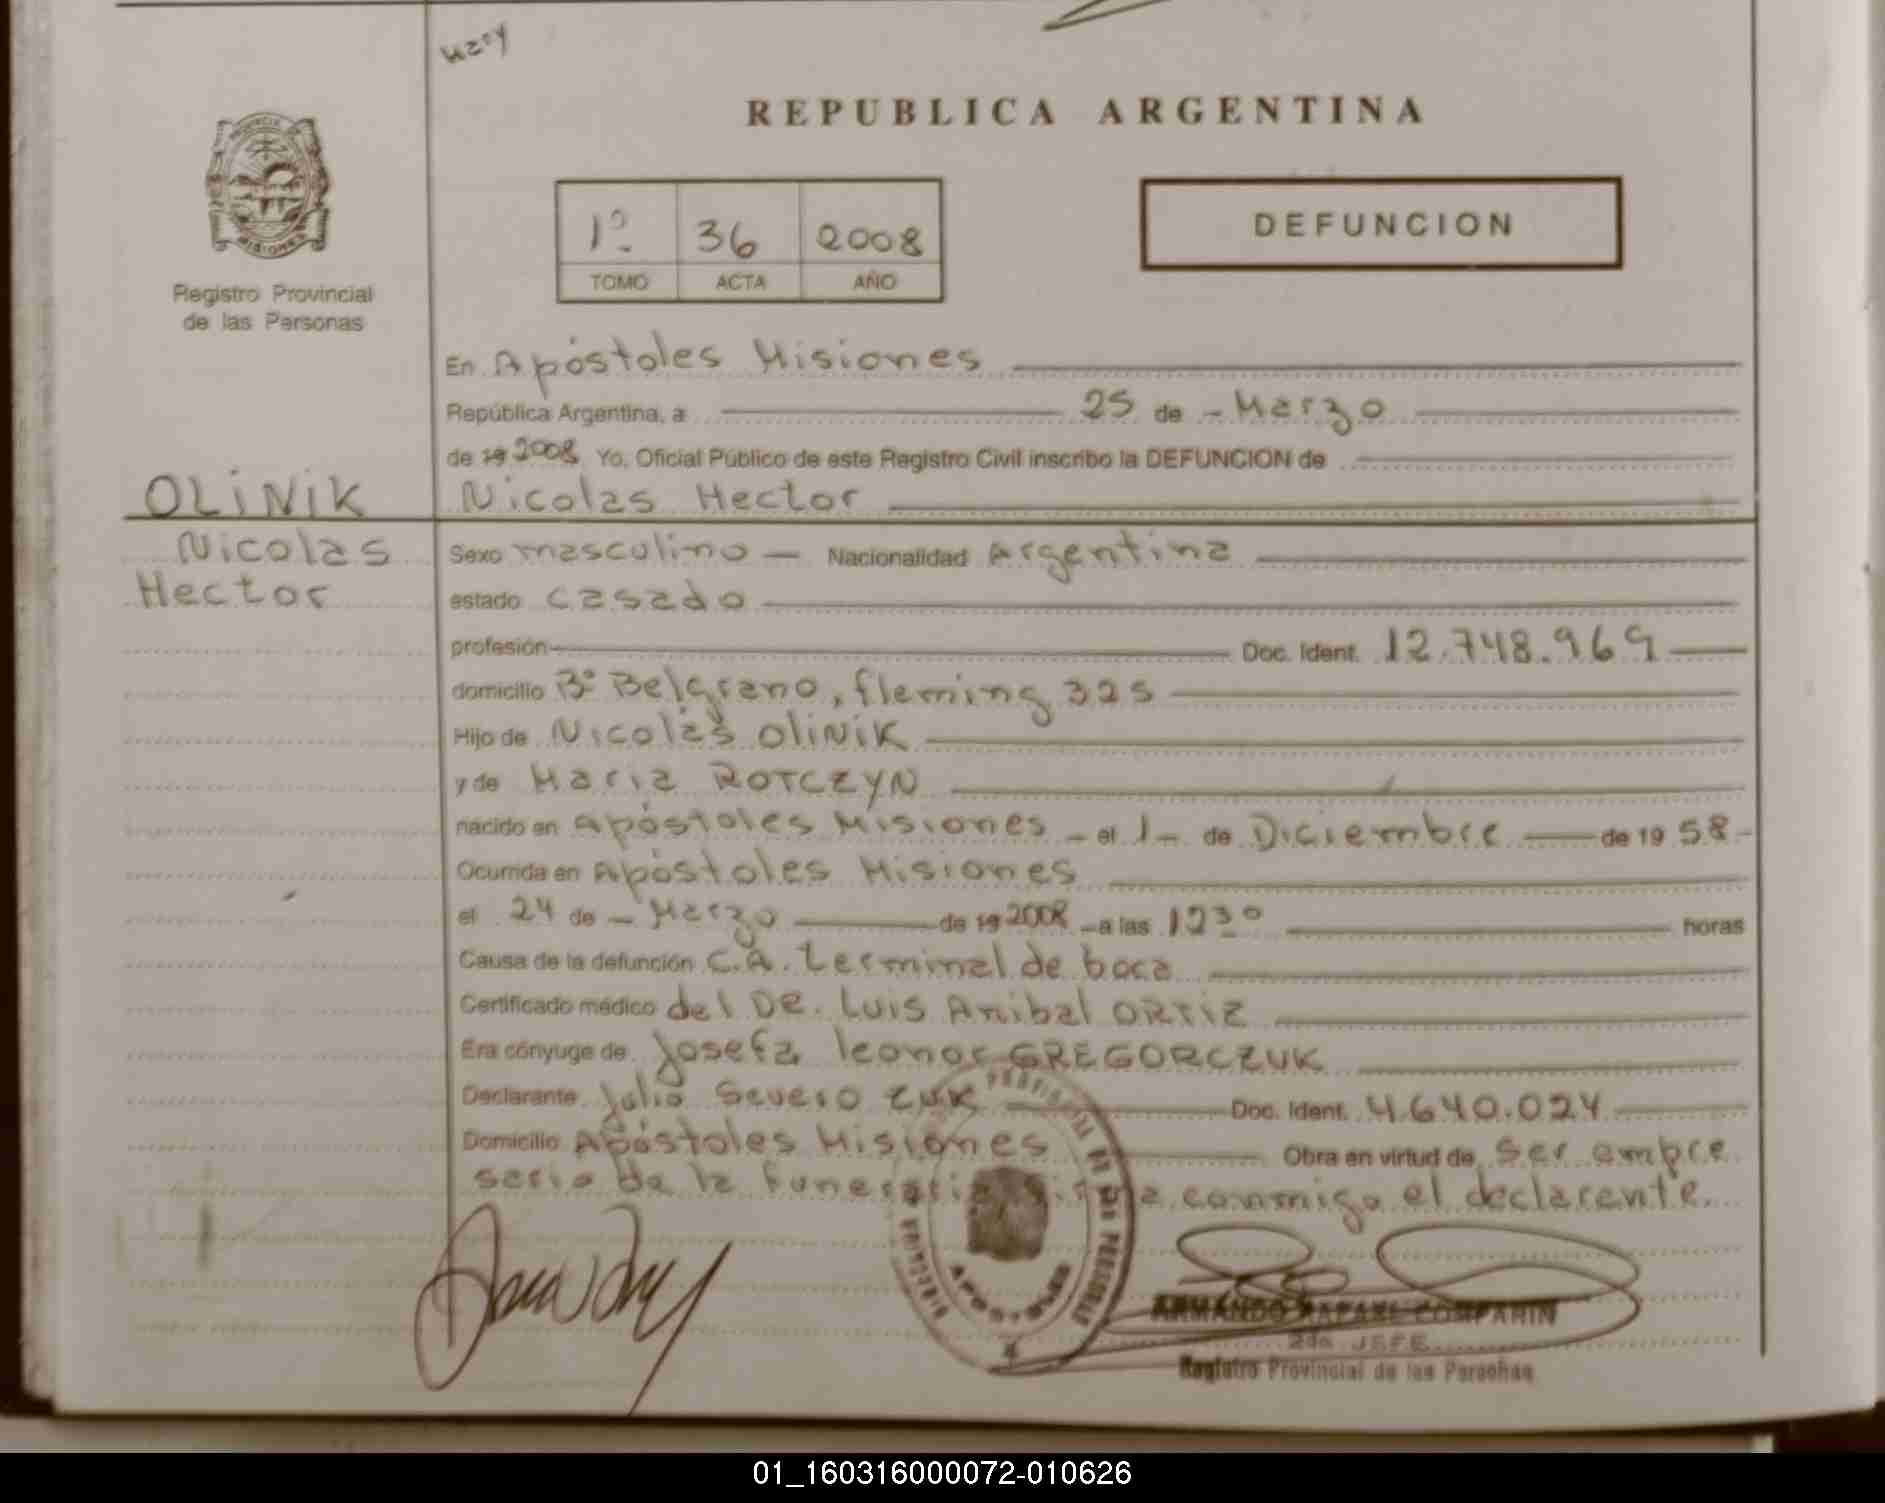 REPUBLICA ARGENTINA
PROVINCIA
MISIONES
Registro Provincial
de las Personas
1º 36 2008
TOMO ACTA AÑO
DEFUNCION
En Apóstoles Misiones
República Argentina, a 25 de Marzo
de 19 2008 Yo, Oficial Público de este Registro Civil inscribo la DEFUNCION de
OLINIK Nicolas Hector
Nicolas
Hector
Sexo masculino Nacionalidad Argentina
estado casado
profesión Doc. Ident. 12.748.969
domicilio Bº Belgrano, fleming 325
Hijo de Nicolás OLINIK
y de Maria ROTCZYN
nacido en apóstoles Misiones el 1 de Diciembre de 19 58
Ocurrida en Apóstoles Misiones
el 24 de Marzo de 19 2008 a las 12 30 horas
Causa de la defunción C.A. terminal de boca
Certificado médico del DR. Luis Anibal ORTIZ
Era cónyuge de Josefa leonor GREGORCZUK
Declarante Julio Severo ZUK Doc. Ident. 4.640.024
Domicilio Apóstoles Misiones Obra en virtud de ser empre
sario de la funeraria firma conmigo el declarante.
APOSTOLES
ARMANDO RAFAEL COMPARIN
2do JEFE
Registro Provincial de las Personas
01_160316000072-010626